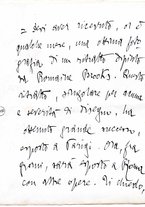 = Devi aver ricevuto, or è
qualche mese, una ottima foto-
grafia di un ritratto dipinto
da Romaine Brooks. Questo
ritratto, singolare per
e severità di disegno, ha
ottenuto grande successo,
esposto a Parigi. Ora, fra
giorni, sarà esposto a Roma
con altre opere. Ti chiedo,